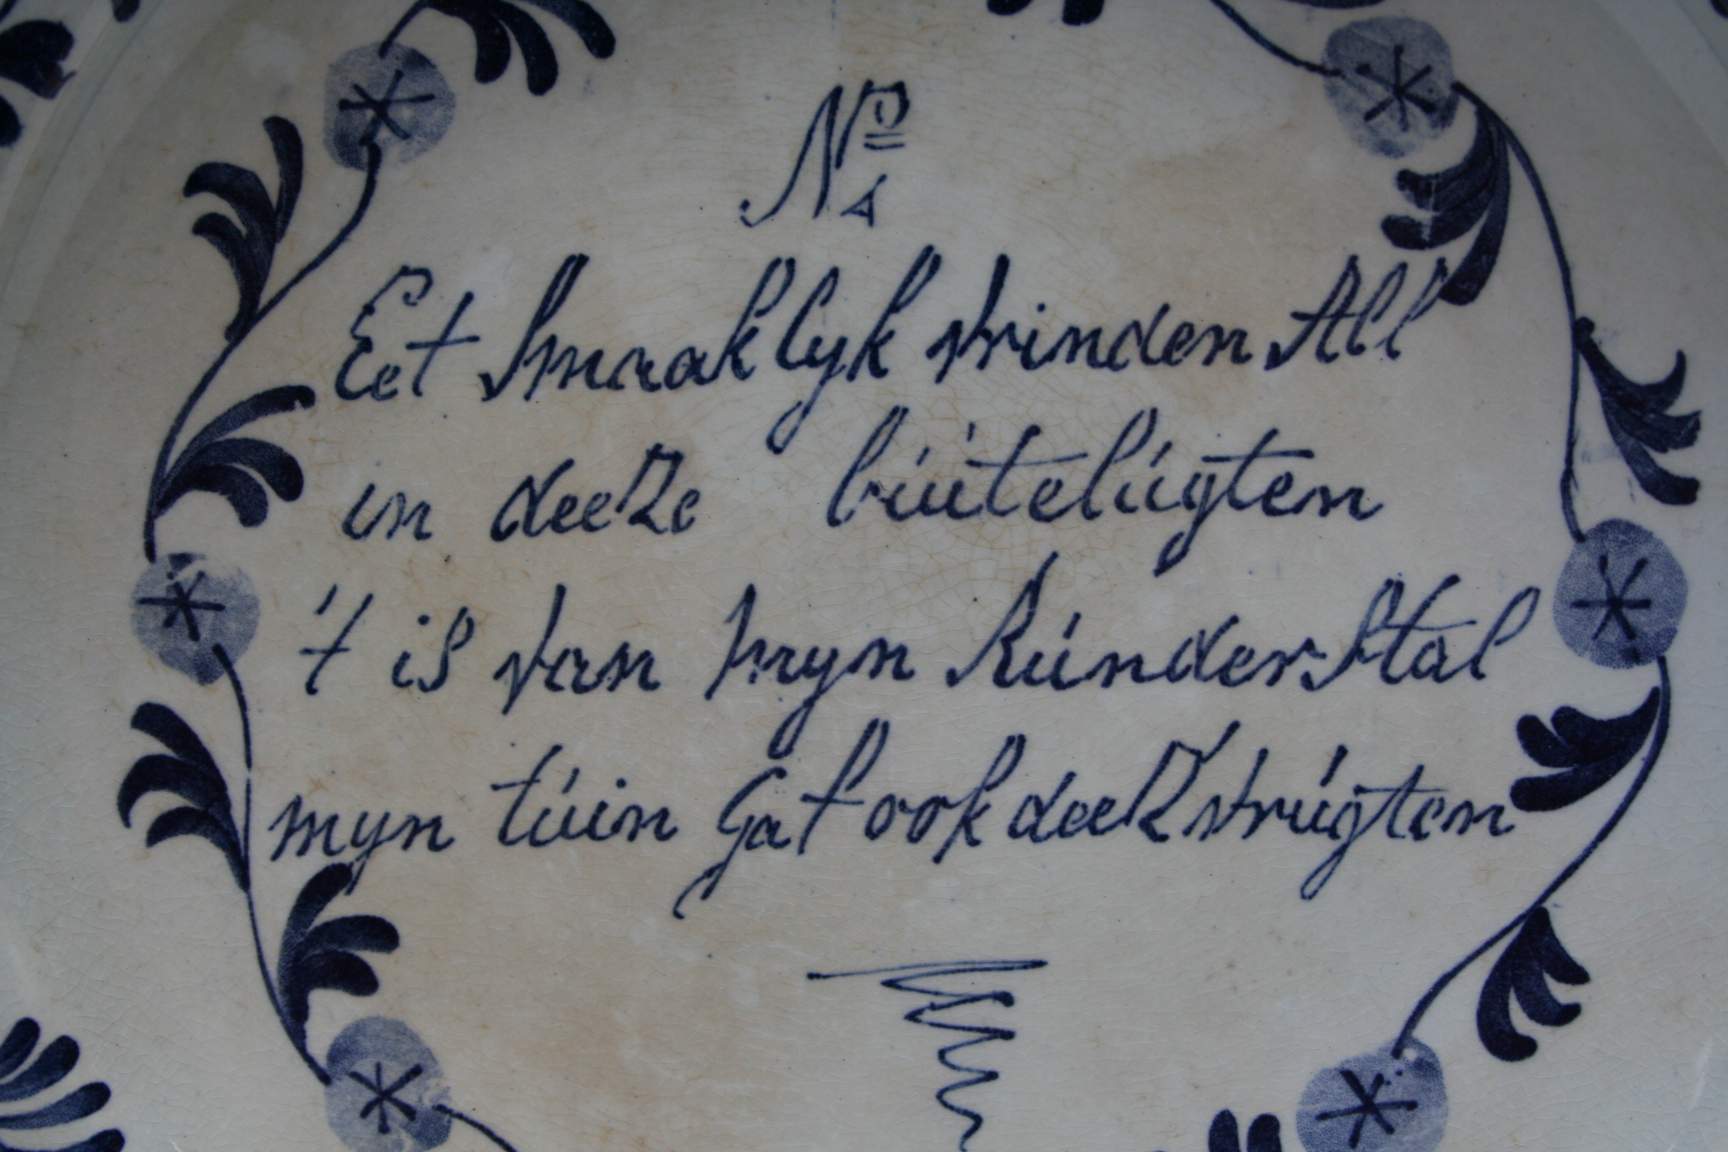 Nº
4
Eet Smaaklyk vrinden All
in deeze búitelúgten
't is van myn Rúnder Stal
myn túin Gaf ook deeZ vrúgten